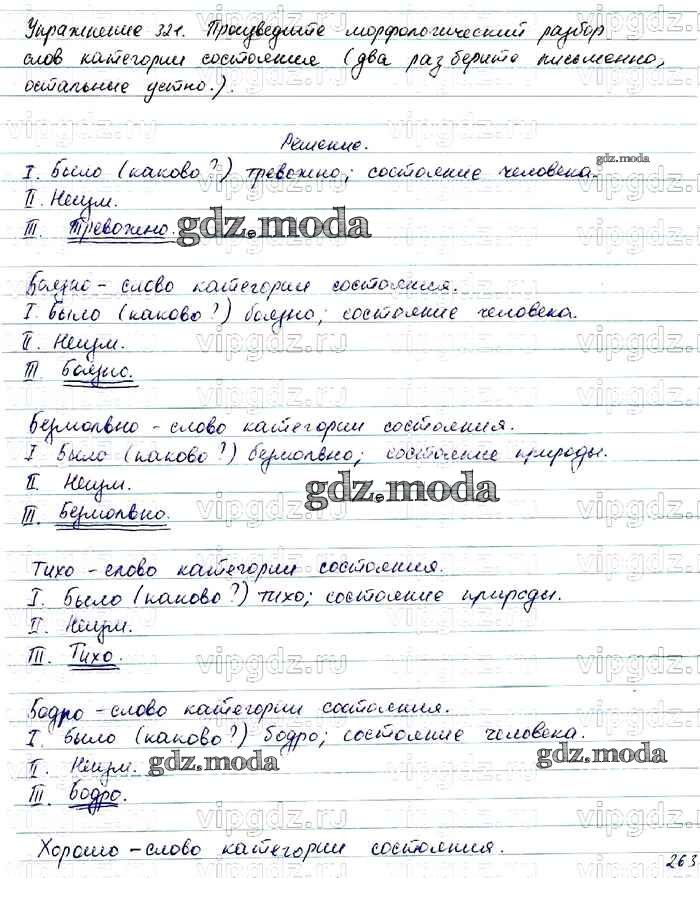 Упражнение 321. Произведите морфологический разбор
слов категории состояния (два разберите письменно,
остальные устно.).
Решение.
gdz.moda
I. Было (каково?) тревожно; состояние человека.
II. Неизм.
III. Тревожно.
gdz.moda
Боязно – слово категории состояния.
I. Было (каково?) боязно; состояние человека.
II. Неизм.
III. Боязно.
Безмолвно – слово категории состояния.
I Было (каково?) безмолвно; состояние природы.
II. Неизм.
gdz.moda
III. Безмолвно.
Тихо – слово категории состояния.
I. Было (каково?) тихо; состояние природы.
II. Неизм.
III. Тихо.
Бодро – слово категории состояния.
I. Было (каково?) бодро; состояние человека.
II. Неизм.
gdz.moda
gdz.moda
III. Бодро.
Хорошо – слово категории состояния.
263
vipgdz.ru